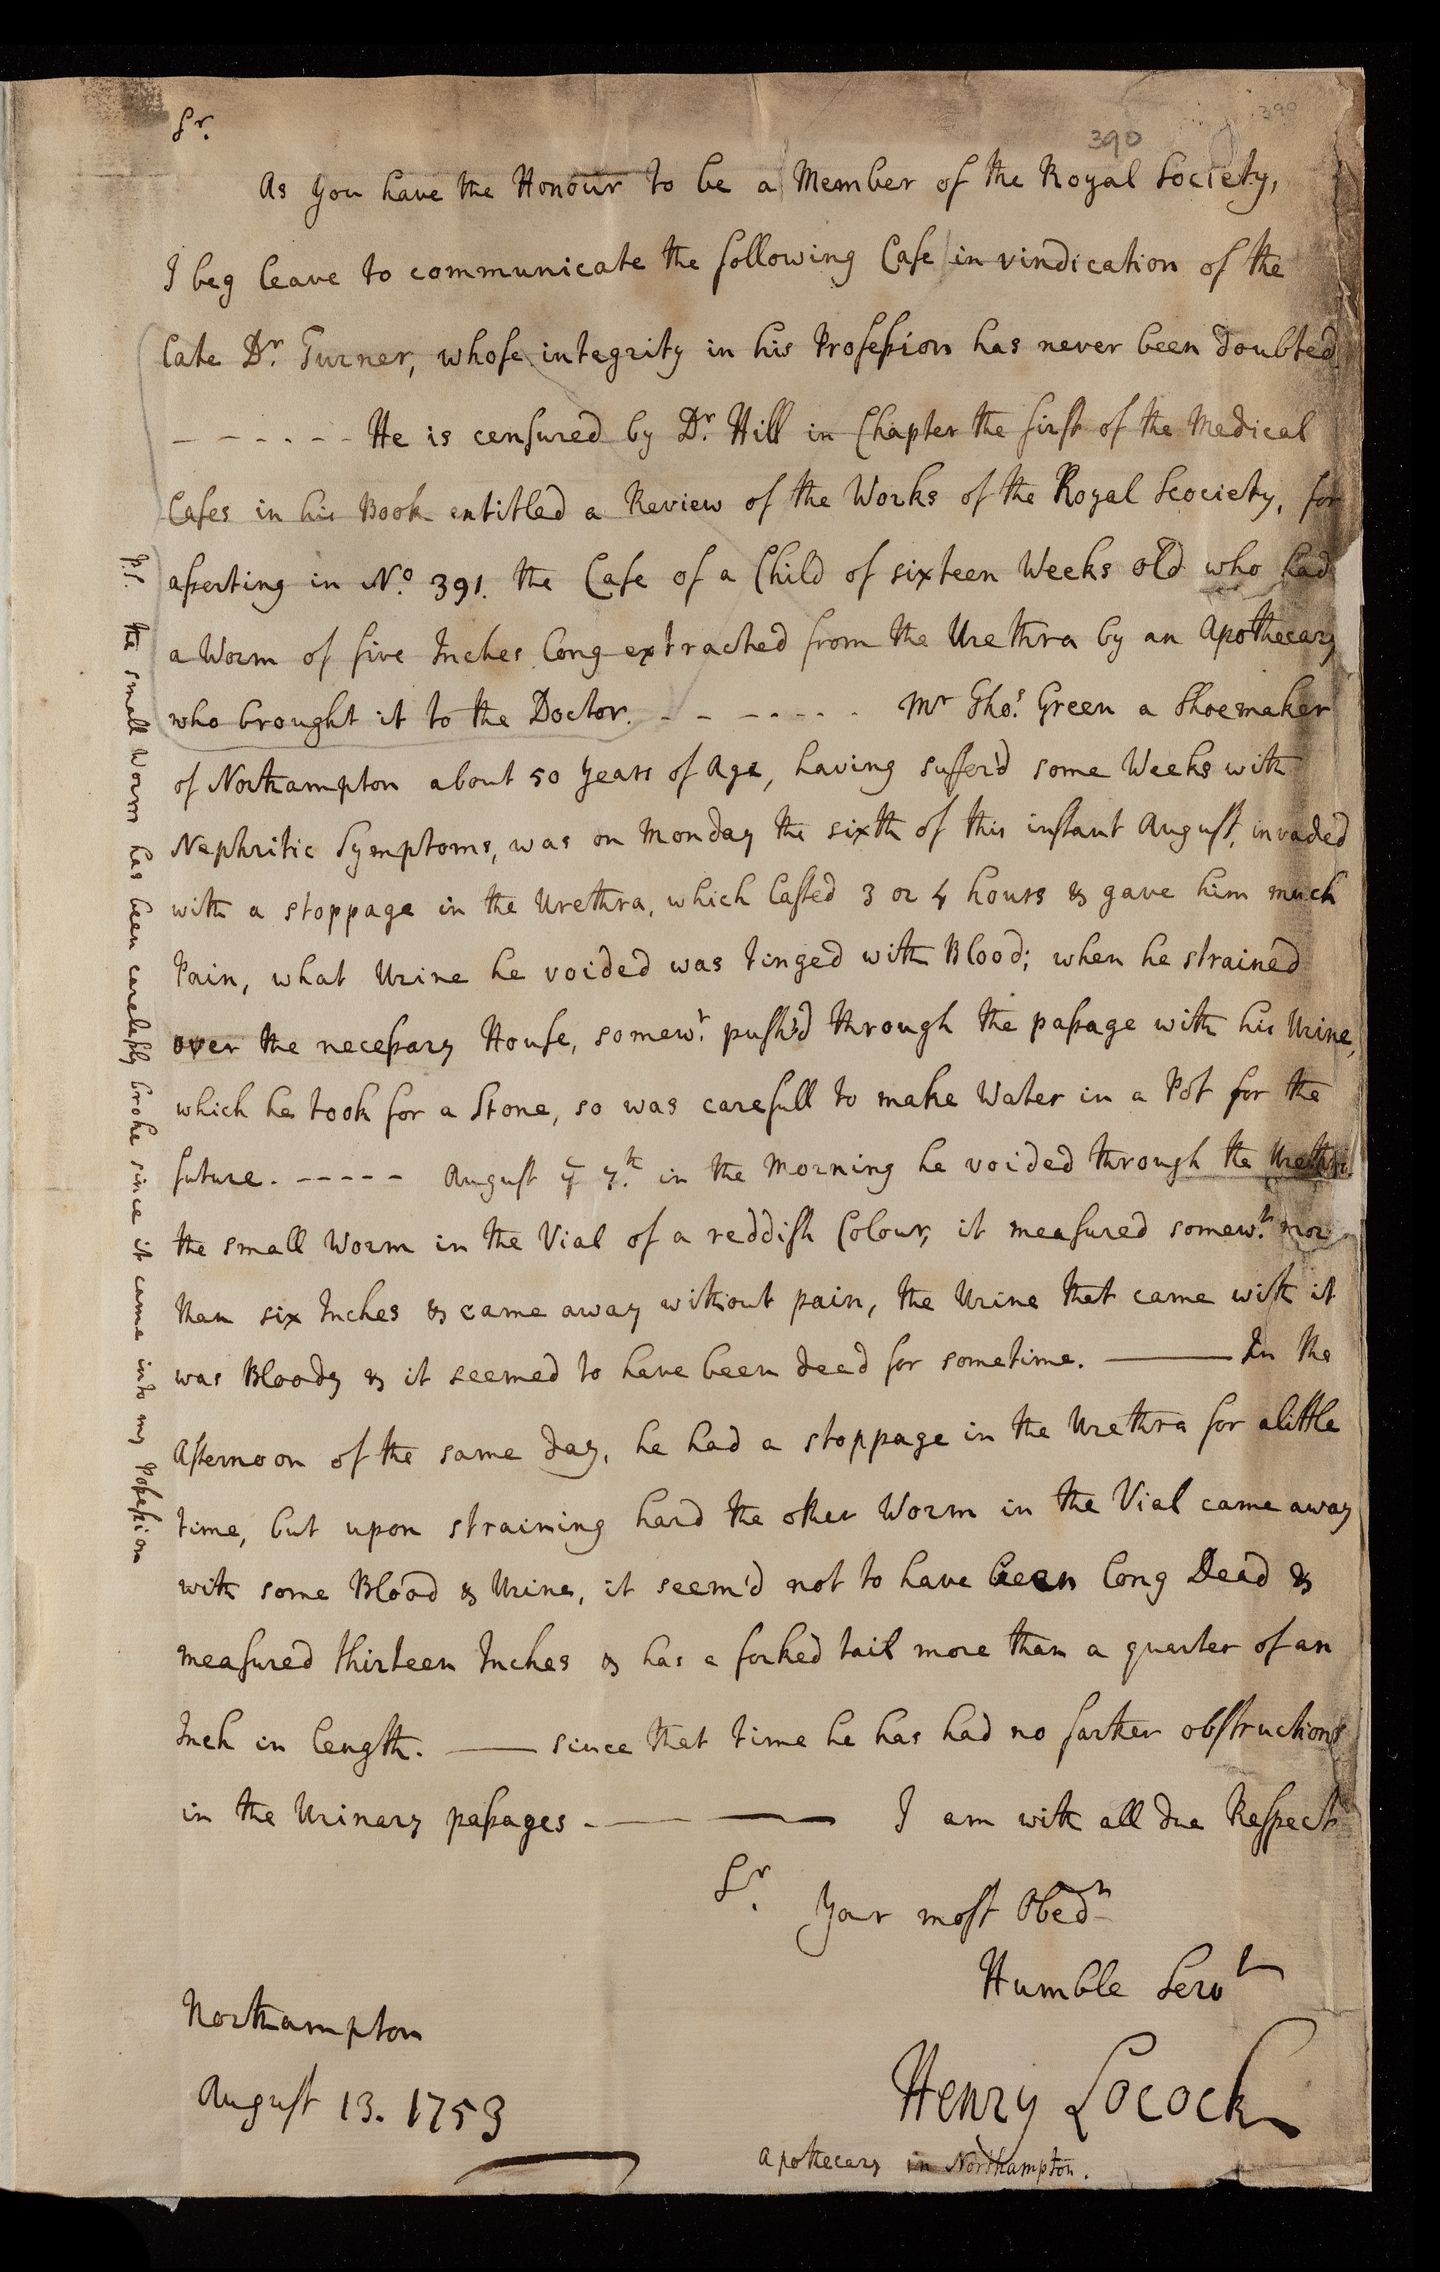 390
390
Sr.
As you have the Honour to be a Member of the Royal Society,
I beg leave to communicate the following Case in vindication of the
late Dr. Turner, whose integrity in his Profession has never been doubted.
------ He is censured by Dr. Hill in Chapter the first of the Medical
Cases in his Book entitled a Review of the Works of the Royal Scociety, for
asserting in No. 391. the Case of a Child of sixteen Weeks old who had
a Worm of five Inches long extracted from the Urethra by an Apothecary
who brought it to the Doctor. -------- Mr Tho.s Green a Shoemaker
of Northampton about 50 years of Age, having suffer'd some Weeks with
Nephritic Symptoms, was on Monday the sixth of this instant August, invaded
with a stoppage in the Urethra, which lasted 3 or 4 hours & gave him much
Pain, what Urine he voided was tinged with Blood; when he strained
over the necessary House, somew.t push'd through the passage with his Urine,
which he took for a Stone, so was carefull to make Water in a Pot for the
future. ----- August ye 7.th in the Morning he voided through the Urethra
the small Worm in the Vial of a reddish Colour, it measured somew.t mor
than six Inches & came away without pain, the Urine that came with it
was Bloody & it seemed to have been dead for sometime. —— In the
Afternoon of the same day, he had a stoppage in the Urethra for alittle
time, but upon straining hard the other Worm in the Vial came away
with some Blood & Urine, it seem'd not to have been long Dead &
measured thirteen Inches & has a forked tail more than a quarter of an
Inch in length. —— since that time he has had no farther obstructions
in the Urinary passages. —— —— I am with all due Respect
Sr.
Your most Obedt
Humble Servt
Henry Locock
Apothecary in Northampton.
Northampton
August 13. 1753
P.S. the small Worm has been carelessly broke since it came into my Possession